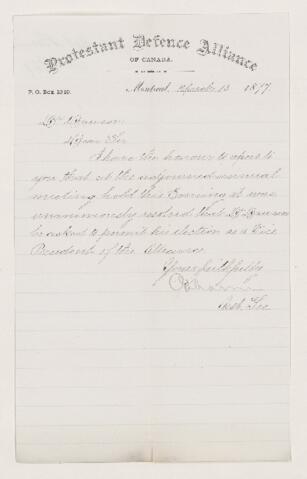 Protestant Defence Alliance
OF CANADA.
P. O. Box 1910. Montreal, March 13 1877.
Dr Dawson
Dear Sir
I have the honour to report to
you that at the adjourned annual
meeting held this Evening it was
unanimously resolved that Dr Dawson
be asked to permit his election as a Vice
President of the Alliance.
Yours faithfully
Sec